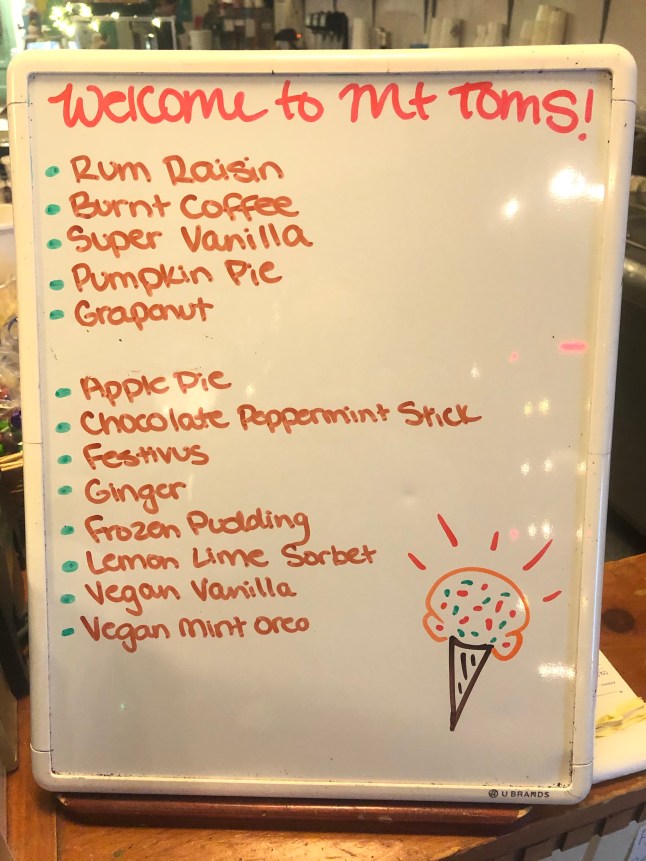 Welcome to Mt Toms!
Rum Raisin
Burnt Coffee
Super Vanilla
Pumpkin Pie
Grapanut
Apple Pie
Chocolate Peppermint Stick
Festivus
Ginger
Frozen Pudding
Lemon Lime Sorbet
Vegan Vanilla
Vegan Mint Oreo
U BRANDS